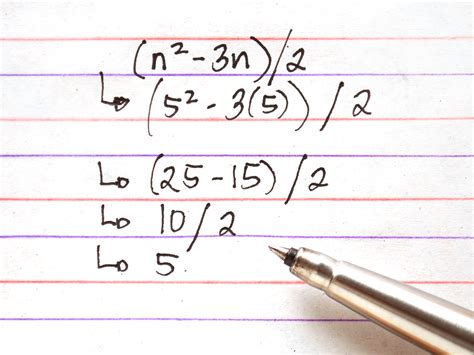 (n² - 3n)/2
↳ (5² - 3(5)) / 2
↳ (25 - 15) / 2
↳ 10 / 2
↳ 5